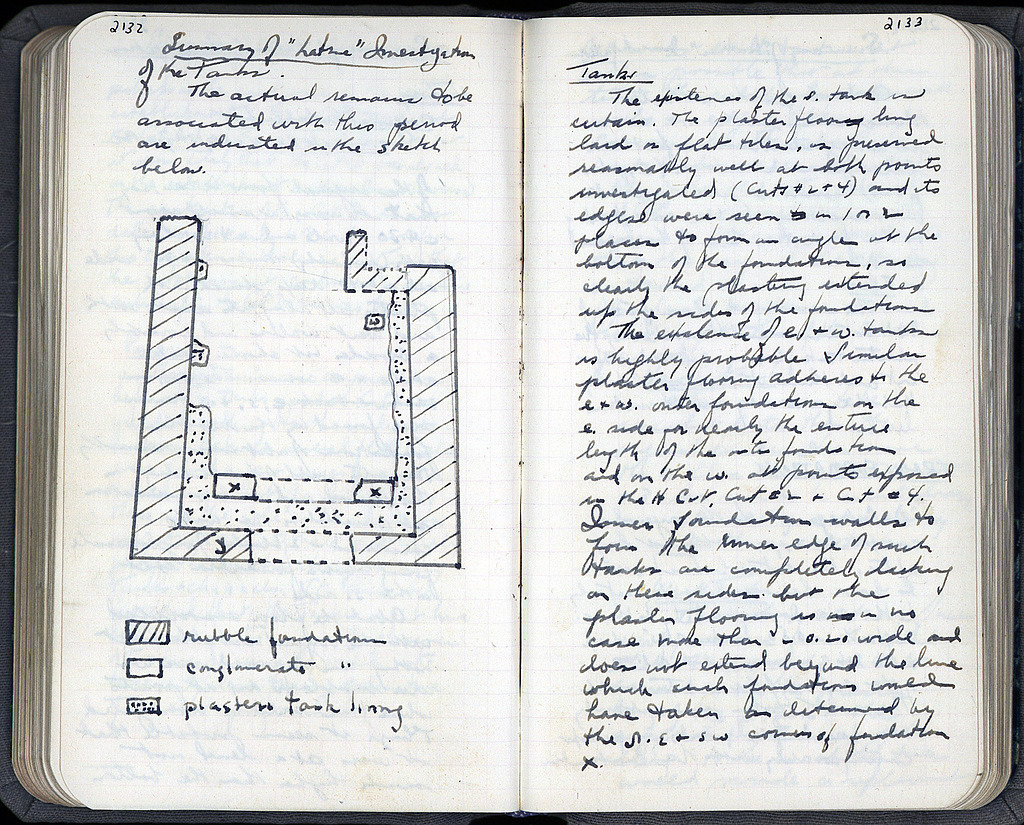 2132
Summary of "Latrine" Investigation
of the Tanks.
The actual remains to be
associated with this period
are indicated in the sketch
below.
x
x
y
rubble foundations
conglomerate "
plastered tank lining
2133
Tanks
The existence of the S. tank is
certain. The plaster flooring being
laid on flat tiles, is preserved
reasonably well at both points
investigated (Cuts #2 + 4) and its
edges were seen in 1 or 2
places to form an angle at the
bottom of the foundations, so
clearly the plastering extended
up the sides of the foundations
The existence of e. + w. tanks
is highly probable. Similar
plaster flooring adheres to the
e + w. outer foundations on the
e. side for nearly the entire
length of the outer foundation
and on the w. at points exposed
in the H Cut, Cut #2 + Cut #4.
Inner foundation walls to
form the inner edge of such
tanks are completely lacking
on these sides but the
plaster flooring is in no
case more than 0.20 wide and
does not extend beyond the line
which such foundations would
have taken as determined by
the S. E + SW corners of foundation
x.